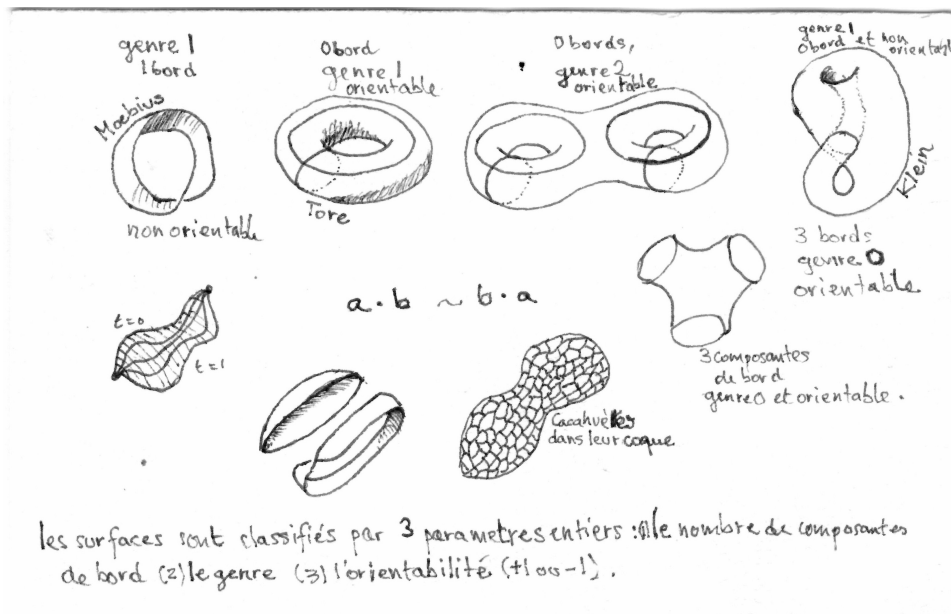 genre 1
1 bord
Moebius
non orientable
0 bord
genre 1
orientable
Tore
0 bords,
genre 2
orientable
genre 1
0 bord et non
orientable
Klein
3 bords
genre 0
orientable
t=0
t=1
a · b ~ b · a
3 composantes
de bord
genre 0 et orientable .
Cacahuètes
dans leur coque
les surfaces sont classifiés par 3 parametres entiers : (1) le nombre de composantes
de bord (2) le genre (3) l'orientabilité (+1 ou -1) .